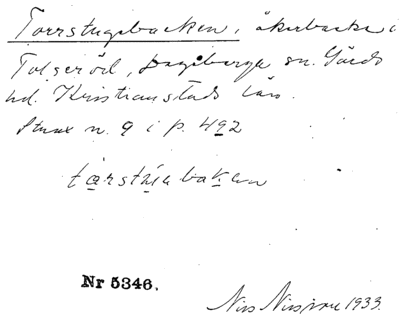 Torrstugebacken, åkerbacke i
Tolseröd, Degeberga sn. Gärds
hd. Kristianstads län.
Strax n. 9 i p. 492
Nr 5346.
Nils Nilsson 1933.